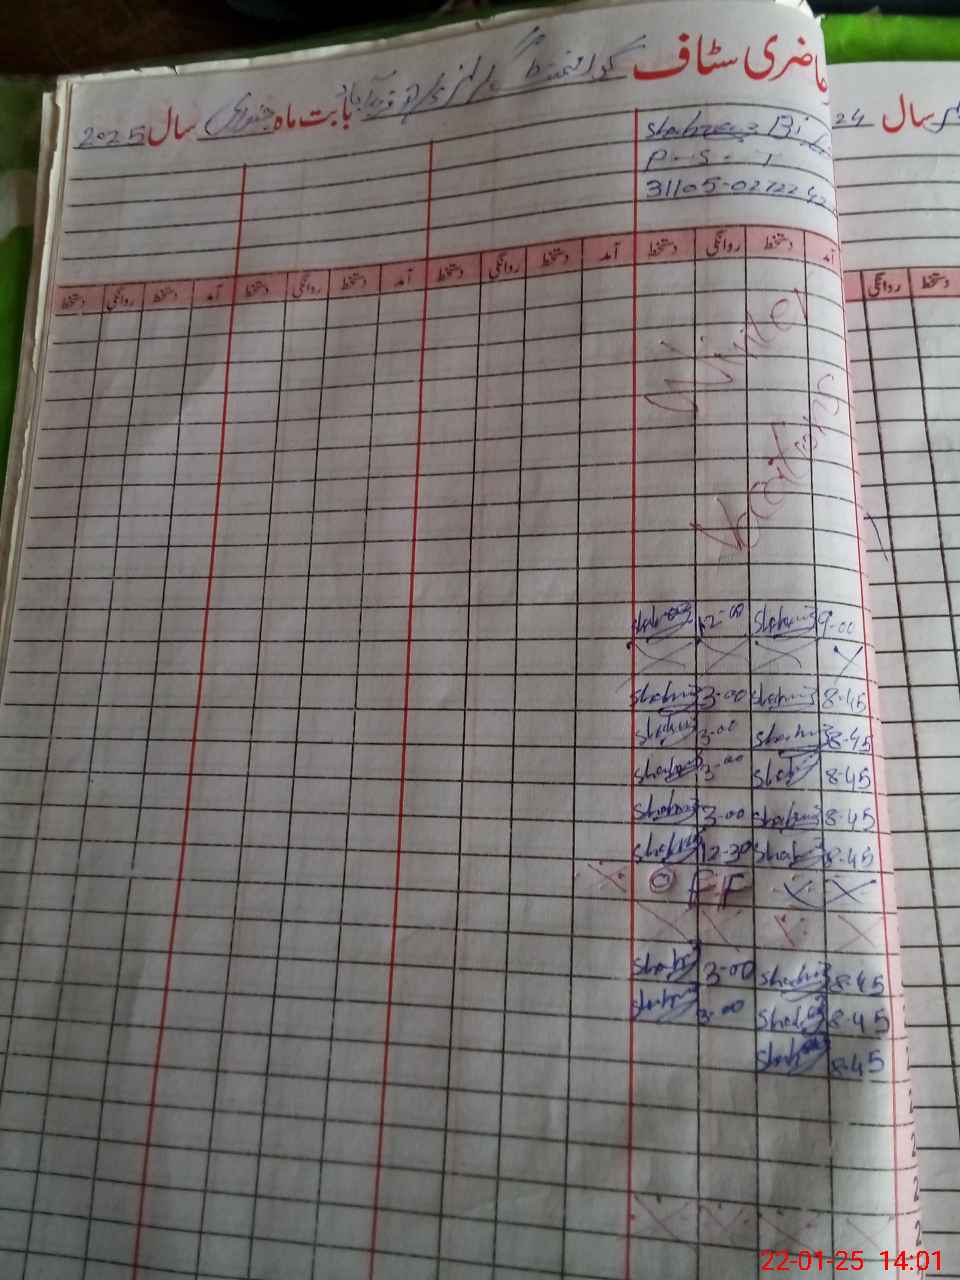 حاضری سٹاف گورنمنٹ گرلز
بابت ماہ جنوری سال 2025
سال 24
Shahnaz Bi
P-S-T
31105-0272242
آمد دستخط روانگی دستخط آمد دستخط روانگی دستخط آمد دستخط روانگی دستخط آمد دستخط روانگی دستخط
دستخط روانگی
Winter
Vacations
9-00 Shahnaz 12-00 Shahnaz
X X X X
8-45 Shahnaz 3-00 Shahnaz
8-45 Shahnaz 3-00 Shahnaz
8-45 Shahnaz 3-00 Shahnaz
8-45 Shahnaz 3-00 Shahnaz
8-45 Shahnaz 12-30 Shahnaz
OFF
8-45 Shahnaz 3-00 Shahnaz
8-45 Shahnaz 3-00 Shahnaz
8-45 Shahnaz
22-01-25 14:01